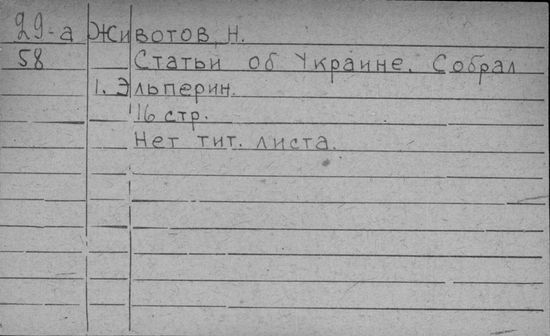 29-а Животов, Н.
58 Статьи об Украине. Собрал
1. Эльперин.
16 стр.
Нет тит. листа.